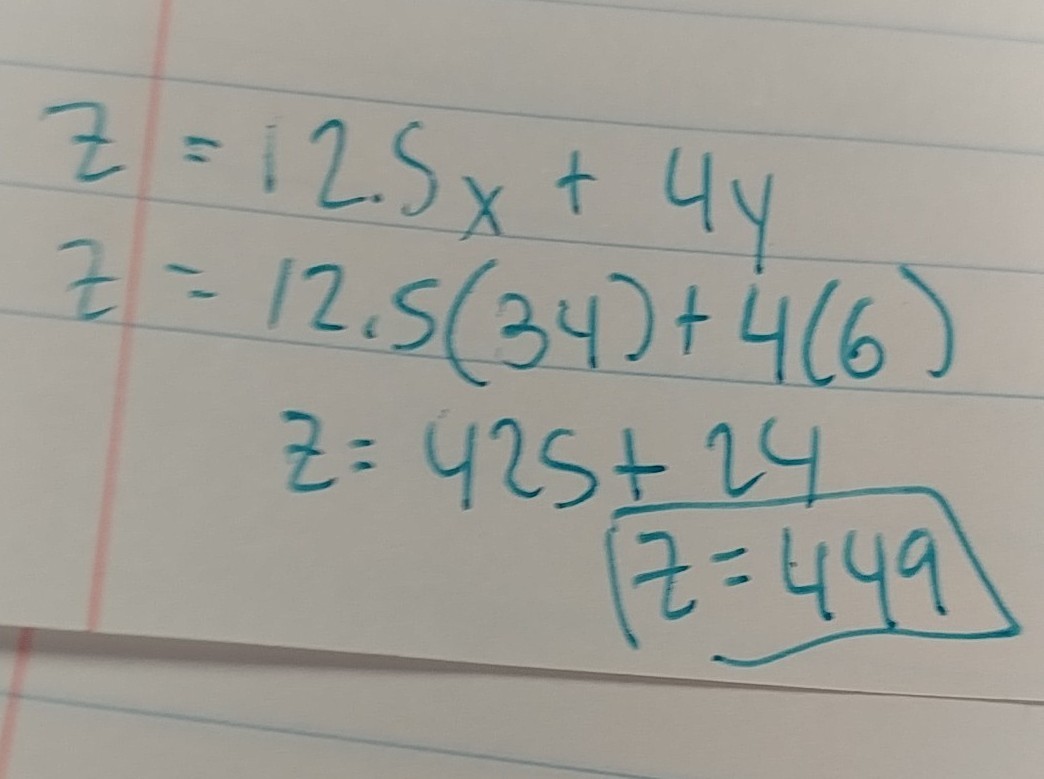 z = 12.5x + 4y
z = 12.5(34) + 4(6)
z = 425 + 24
z = 449